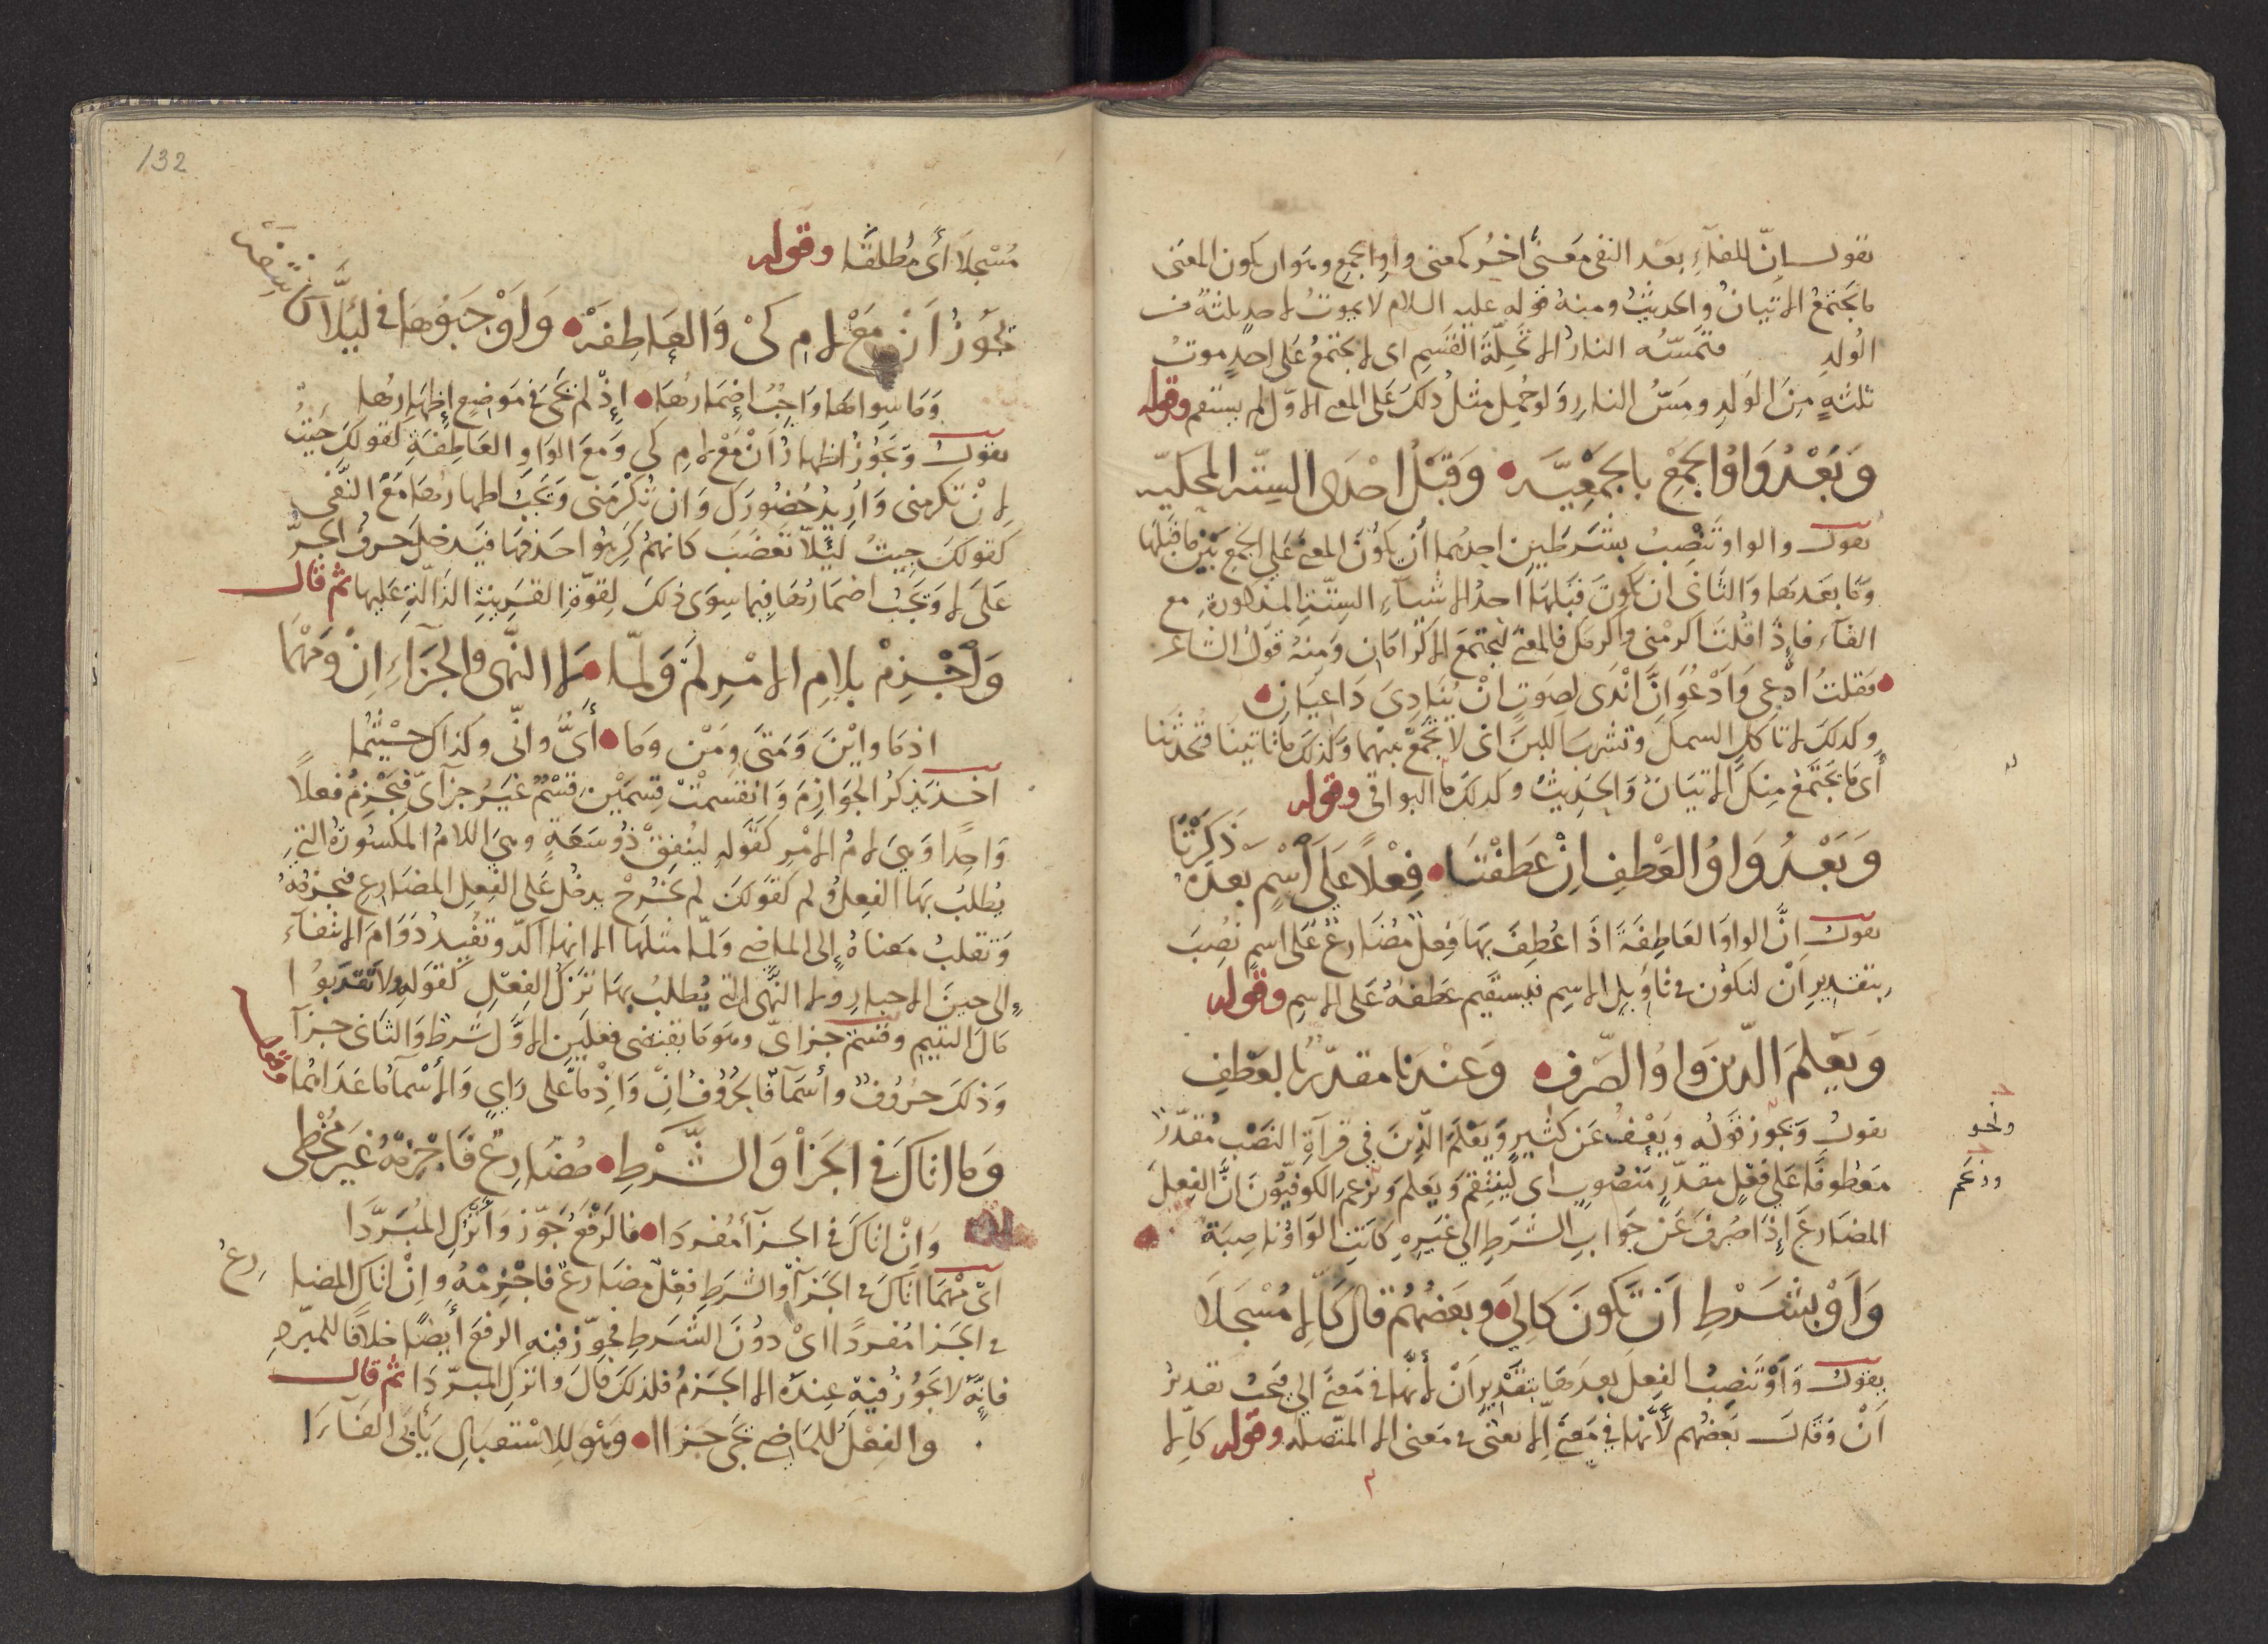 يقول إنّ للفاءِ بَعْد النفي مَعنىً اخرُ كمعنى واوِ الجمع وهو ان يكون المعنى
ما يجتمعُ الاتيانُ والحديثُ ومنهُ قوله عليه السلام لا يموتُ لاحدٍ ثلثةٌ من
الولدِ فتمسّه النارُ الا تحِلّةَ القَسَمِ اى لا يجتمعُ على احدٍ موتُ
ثلثهٍ مِنَ الوَلدِ ومَسُّ النارِ وَلو حُمِل مثلُ ذلكَ على المعنى الاوّل لم يستقم وقوله
وَبَعْدُ وَاوُ الجَمْعِ بالجَمْعِيَّه وَقَبْلُ احْدَى السِتّه المحكيّه
يقول والواو تَنْصِبُ بشَرَطَيْن احدهما أن يكُونَ المعنى عَلى الجمعِ بَيْن ما قَبْلَها
وَمَا بعَدهَا وَالثانى ان يكونَ قَبْلهَا احدُ الاشياءِ السِتّةِ المذكورةِ مع
الفآء فإذا قُلتَ اكرمْنى واكرمَكَ فالمعنى لِيجتمعَ الاكرامَان وَمنِهُ قولُ الشاعر
فقلتُ ادْعى وَادْعُوَ انّ اَنْدَى لصَوتٍ انْ يُنَادِىَ دَاعيَانِ
وكذلكَ لا تاكل السمكَ وتشربَ اللبنَ اى لا تجمَعْ بينهما وَكذلكَ ما تاتينَا فتُحدثَنا
أى مَا يَجتَمعُ مِنكَ الاتيَانُ وَالحَديثُ وكذلكَ البواقى وقوله
وَبَعْدُ وَاوُ العَطفِ اِنْ عَطَفْتَا فِعْلاً عَلَى اسْمٍ بَعْدَهُ ذَكَرْتَا
يقول انَّ الواوَ العَاطِفَةَ اذَا عُطِفَ بهَا فِعلٌ مُضَارعٌ عَلى اسمٍ نُصِبَ
بتقديرِ اَنْ لتكُونَ فى تاوِيلِ الاسمِ فيستقيم عَطفهُ عَلى الاسمِ وقوله
وَيَعْلمَ الّذينَ وَاوُ الصَّرْفِ وَعِنْدَنا مقدّرٌ بالعَطفِ
يقولُ وَيجوز قولُه وَيَعْفُ عَن كثيرٍ وَيَعْلمَ الّذِينَ فى قرآةِ النصْبِ مُقدّراً
ونحو
مَعطوفًا عَلى فِعْلٍ مقدّرٍ مَنصُوبٍ اى لِيَنتقِمَ وَيَعلمَ وَتزعمِ الكوفيّونَ انَّ الفِعلَ
وزعم
المضَارعَ إذَا صُرفَ عَن جَوَابِ الشرَطِ الى غَيرِهِ كانتِ الوَاوُ ناصِبَة
وَاَوْ بِشَرْطِ اَنْ تَكُونَ كَاِلَى وبعَضُهُم قال كَاِلا مُسْجَلاَ
يقول وَأوْ تَنصِبُ الفِعلَ بعدَهَا بتقْدِيرِ اَنْ لأنّها فى مَعنى الى فَيَجبُ تقديرُ
اَنْ وقال بَعضُهم لأنّها فى مَعنى اِلا يعنى فى مَعنى الا المتّصله وقوله كاِلا
132
مُسْجلاً أى مُطلقًا وقوله
تَجُوزُ اَنْ مَعْ لاَمِ كَىْ وَالعَاطِفَهْ وَاَوْجَبُوْهَا فى لِئَلَّا
وَمَا سِواهَا وَاجِبٌ اِضْمَارُهَا اِذْ لم تَجَىْ فى مَوضعٍ اِظهَارُها
يقول وَيَجُوزُ اظهارُ اَنْ مَعْ لامِ كى وَمعَ الوَاوِ العَاطِفَةِ كقولكَ جِئتُ
لاِنْ تكرمنى وَاُريدُ حُضُورَكَ وَانْ تُكْرمَنى وَيَجبُ اظهارُهَا مَعْ النَّفى
كقولكَ جِيتُ لئلّا تَغضَبَ كانهم كَرِهُوا حَذفها فيَدخلَ حرفُ الجرِّ
عَلَى لا وَيَجبُ اضمَارُهَا فيما سِوَى ذلكَ لِقوّةِ القَرينةِ الدَالّةِ عَليها ثم قال
وَاَجْزِمْ بلامِ الامْرِ لَمْ وَلَمّا وَلا النَّهى والجَزَآءِ اِنْ وَمَهْمَا
اذمَا وَايْنَ وَمَتى وَمَنْ وَمَا أىُّ وانّى وكذاكَ حيْثُما
اخذ يَذكُر الجَوَازمَ وَانقسَمتْ قِسمَيْن قِسْمٌ غَيرُ جزآىّ فَيَجْزمُ فعلاً
وَاحِدًا وَهِىَ لامُ الامْرِ كَقَولهِ لينُفِقْ ذُو سَعَةٍ وهى اللامُ المكسُورَةُ التى
يُطلبُ بهَا الفعلُ ولم كَقولكَ لم يَخرُجْ يدخُل عَلى الفِعلِ المضَارعِ فيجزمُهُ
وَتقلبُ مَعناهُ إلى الماضى وَلمّا مثلها الا انها آكدُ وَتفُيدُ دَوَامَ الانتفاءِ
الى حينَ الاخبارِ ولا النَّهى التى يُطلبُ بهَا تَرْكُ الفِعْلِ كقوَلهِ ولا تَقربُوا
مَالَ اليتيمِ وقسمٌ جزاىّ وهوَ مَا يقتضى فعلَين الاوّل شرطٌ وَالثانى جزآ
وَذلكَ حرُوُفٌ وأسمَآ فالحُرُوف اِنْ وَاِذمَا عَلى رَايٍ وَالأسْمآ ما عَدَاهُما
وقوله
وَما اتاكَ فى الجَزآ وَالشَّرْطِ مُضَارعٌ فَاجْزِمْهُ غيرَ مُخْطِى
وَاِنْ اتاكَ فى الجزآ مُفردَا فالرَفْعَ جَوّزْ وَاتْركِ المُبَرَّدَا
اىْ مَهْمَا اتاكَ فى الجَزآ وَالشرَطِ فِعْلٌ مضَارعٌ فاجْزِمْهُ وَاِنْ اتاكَ المضارعُ
فى الجَزا مُفردًا اىْ دوُنَ الشَرطِ فجَوّز فيهِ الرفعَ أيضًا خلافًا للمبّردِ
فانّهُ لا يَجُوزُ فيهِ عِندَهُ الا الجَزمُ فلذلكَ قالَ واتركِ المبرّدَا ثم قال
والفِعْلُ للمَاضى يَجى جَزاا وَهْوَ للاسْتقبالِ يَأبَى الفَآءَا